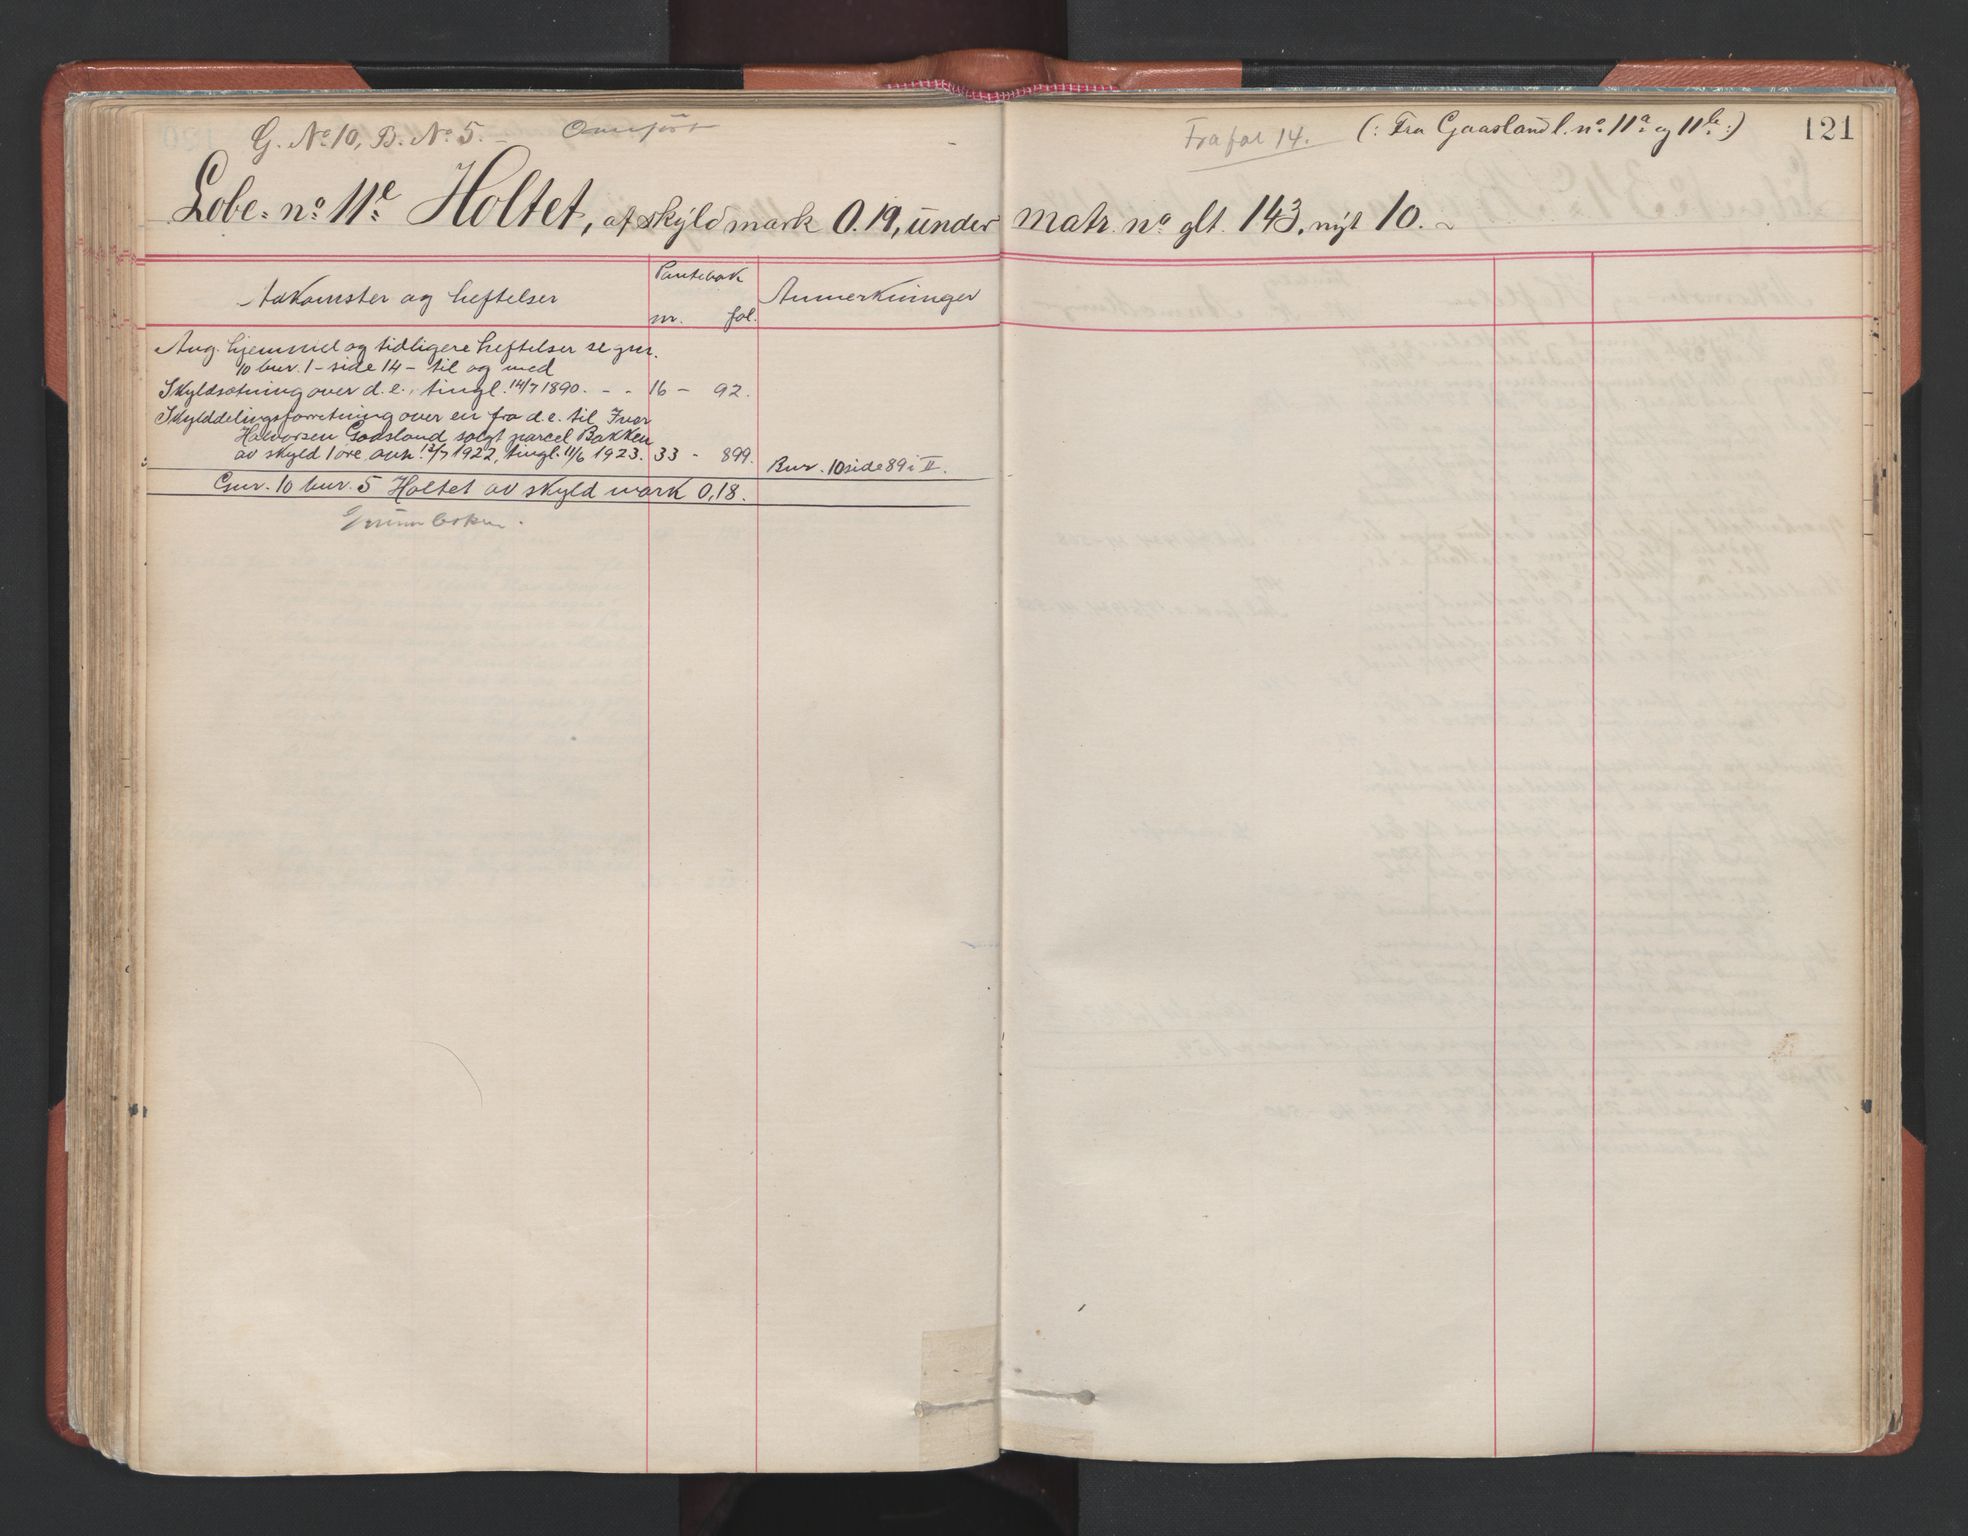 G. No 10, B. No 5. Omført
Fra fol 14. (: Fra Gaasland l. no 11a og 11b :) 121
Løbe-no 11e Holtet, af skyld mark 0.19, under matr. no glt. 143, nyt 10.
Adkomster og heftelser
Pantebok
nr. fol.
Anmerkninger
Ang. hjemmel og tidligere heftelser se gnr.
10 bnr. 1 - side 14 - til og med
Skyldsætning over d.e., tingl. 14/7 1890. - - 16 - 92.
Skylddelingsforretning over en fra d.e. til Ivar
Halvorsen Gaasland solgt parcel Bakken
av skyld 1 øre, avh. 12/7 1922, tingl. 11/6 1923. 33 - 899. Bnr. 10 side 89 i II.
Gnr. 10 bnr. 5 Holtet av skyld mark 0,18.